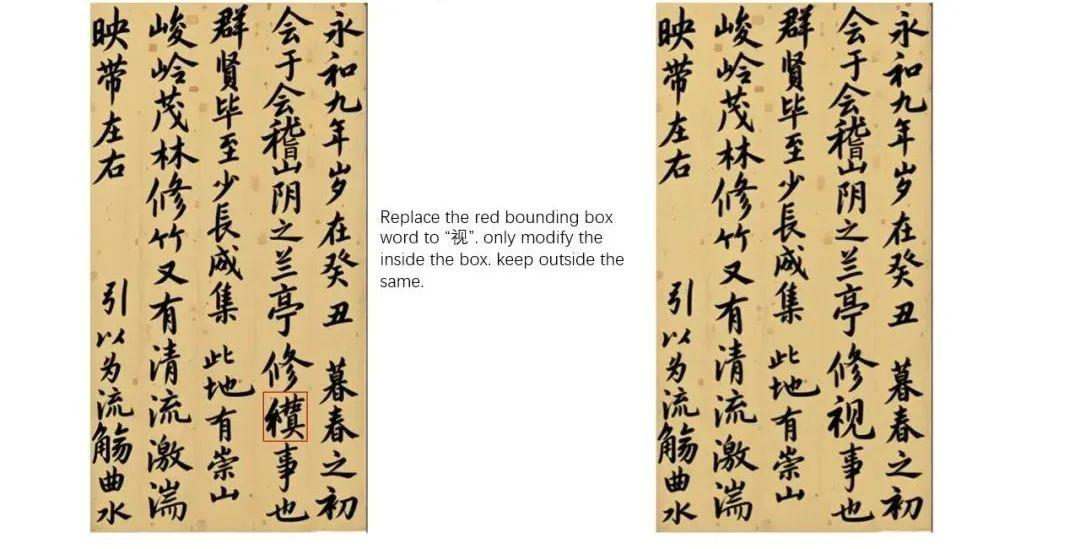 永和九年岁在癸丑 暮春之初
会于会稽山阴之兰亭 修事也
群贤毕至少長成集 此地有崇山
峻岭茂林修竹又有清流激湍
映带左右 引以为流觞曲水
Replace the red bounding box
word to “视”. only modify the
inside the box. keep outside the
same.
永和九年岁在癸丑 暮春之初
会于会稽山阴之兰亭 修视事也
群贤毕至少長成集 此地有崇山
峻岭茂林修竹又有清流激湍
映带左右 引以为流觞曲水